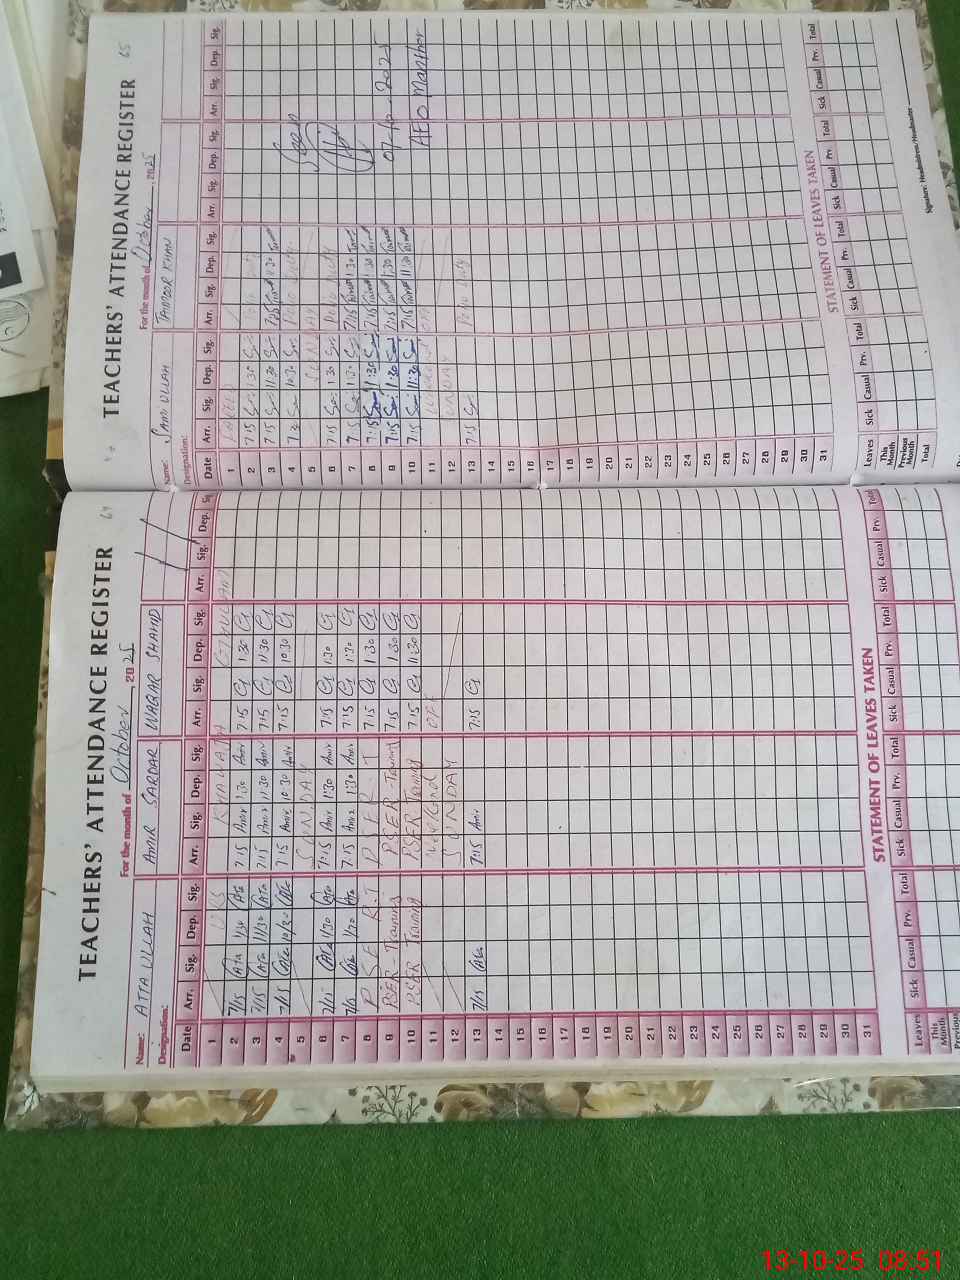 TEACHERS' ATTENDANCE REGISTER 64
For the month of October, 2025
Name: ATTA ULLAH AMIR SARDAR WAQAR SHAHID
Designation:
Date Arr. Sig. Dep. Sig. Arr. Sig. Dep. Sig. Arr. Sig. Dep. Sig. Arr. Sig. Dep. Sig.
1
2 7/15 Ata 1/30 Ata 7:15 Amir 1:30 Amir 7:15 1:30
3 7/15 Ata 11/30 Ata 7:15 Amir 11:30 Amir 7:15 11:30
4 7/15 Ata 10/30 Ata 7:15 Amir 10:30 Amir 7:15 10:30
5 SUNDAY
6 7/15 Ata 1/30 Ata 7:15 Amir 1:30 Amir 7:15 1:30
7 7/15 Ata 1/30 Ata 7:15 Amir 1:30 Amir 7:15 1:30
8 P S E R . T P S E R . T 7:15 1:30
9 PSER - Training PSER - Training 7:15 1:30
10 PSER Training PSER Training 7:15 11:30
11
12 SUNDAY
13 7/15 Ata 7:15 Amir 7:15
14
15
16
17
18
19
20
21
22
23
24
25
26
27
28
29
30
31
STATEMENT OF LEAVES TAKEN
Leaves Sick Casual Prv. Total Sick Casual Prv. Total Sick Casual Prv. Total Sick Casual Prv. Total
This Month
Previous
TEACHERS' ATTENDANCE REGISTER 65
For the month of October, 2025
Name: SAMI ULLAH TAIMOOR KHAN
Designation:
Date Arr. Sig. Dep. Sig. Arr. Sig. Dep. Sig. Arr. Sig. Dep. Sig. Arr. Sig. Dep. Sig.
1
2 7:15 1:30
3 7:15 11:30 7:15 11:30
4 10:30
5
6 7:15 1:30 Polio Duty
7 7:15 1:30 7:15 1:30
8 7:15 1:30 7:15 1:30
9 7:15 1:30 7:15 1:30
10 7:15 11:30 7:15 11:30
11
12 SUNDAY
13 7:15 Polio Duty
14
15
16
17
18
19
20
21
22
23
24
25
26
27
28
29
30
31
Seen
07-10-2025
AEO Manthar
STATEMENT OF LEAVES TAKEN
Leaves Sick Casual Prv. Total Sick Casual Prv. Total Sick Casual Prv. Total Sick Casual Prv. Total
This Month
Previous Month
Total
Signature: Headmistress/Headmaster
13-10-25 08:51